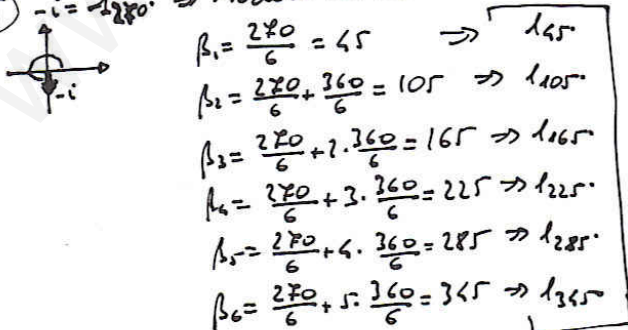 -i = 1₂₇₀° ⇒
-i
β₁ = 270/6 = 45 ⇒ 1₄₅°
β₂ = 270/6 + 360/6 = 105 ⇒ 1₁₀₅°
β₃ = 270/6 + 2·360/6 = 165 ⇒ 1₁₆₅°
β₄ = 270/6 + 3·360/6 = 225 ⇒ 1₂₂₅°
β₅ = 270/6 + 4·360/6 = 285 ⇒ 1₂₈₅°
β₆ = 270/6 + 5·360/6 = 345 ⇒ 1₃₄₅°